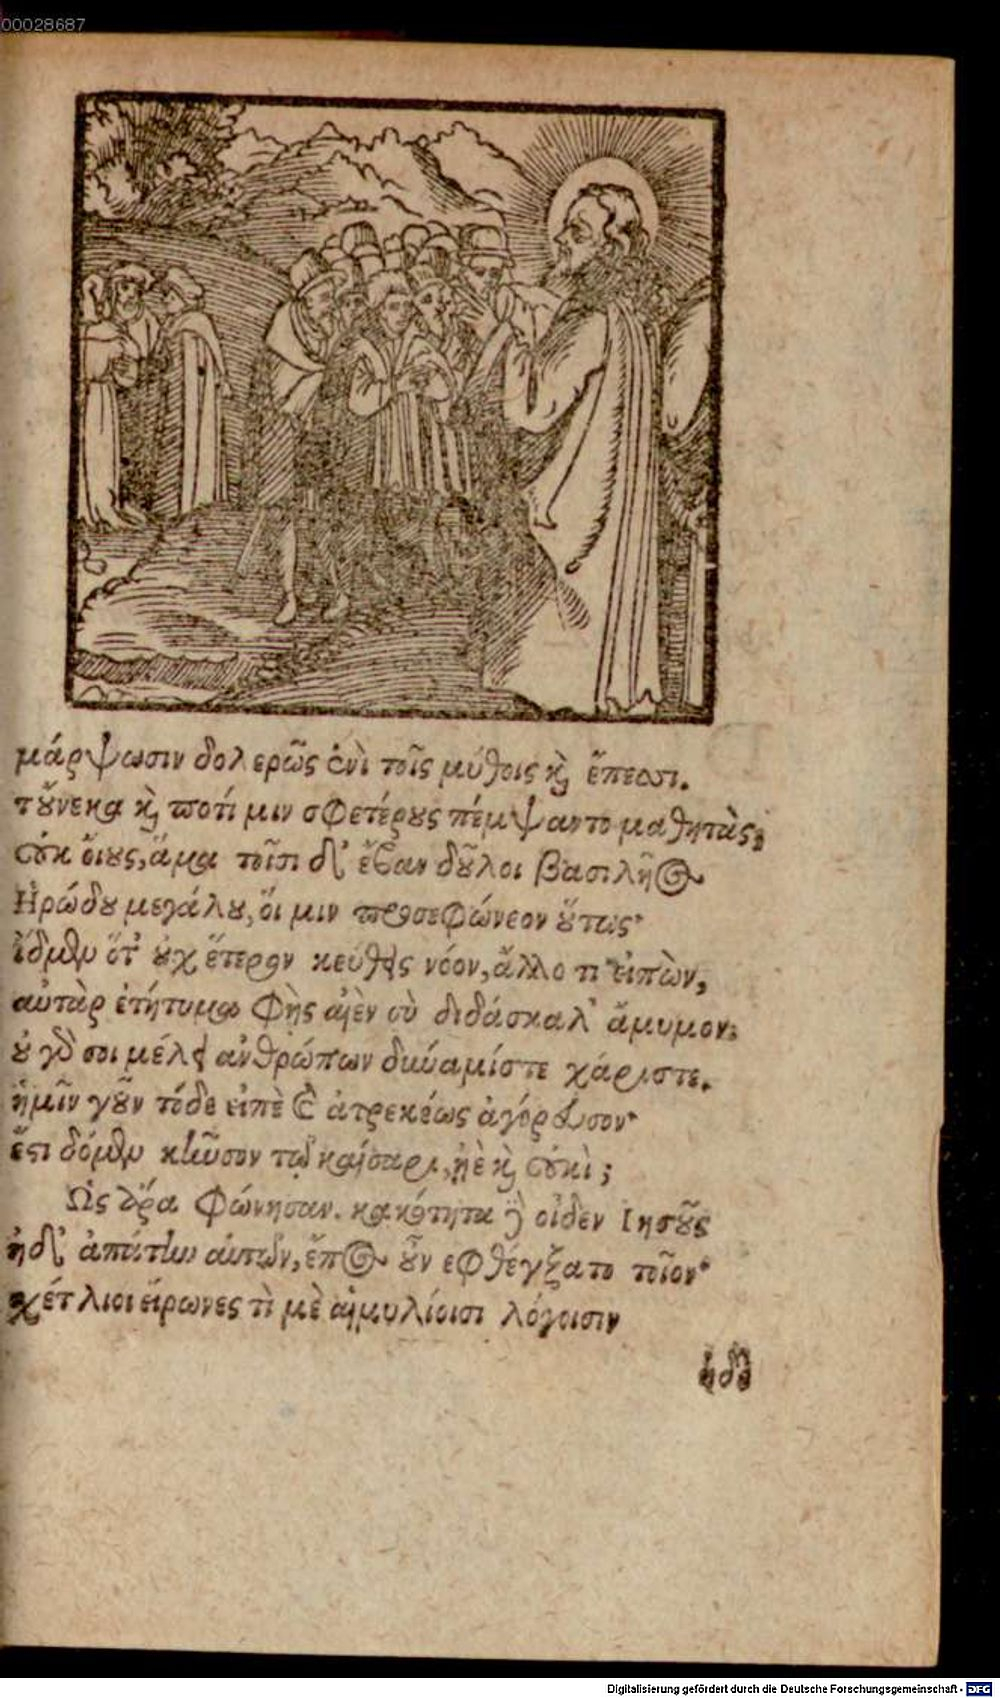 00028687
μάρψωσιν δολερῶς ἐνὶ τοῖς μύθοις κ̀ ἔπεσσι.
τȣ̓́νεκα κ̀ ποτί μιν σφετέρȣς πέμψαντο μαθητὰς,
οὐκ οἴȣς, ἅμα τοῖσι δ' ἔβαν δȣ͂λοι βασιλῆος
Ἡρώδȣ μεγάλȣ, οἵ μιν προσεφώνεον ȣ̔́τως·
ἴδμεν ὅτ' ȣ̓χ ἕτερον κεύθεις νόον, ἄλλο τι εἰπὼν,
αὐτὰρ ἐτήτυμα φῂς αἰὲν σὺ διδάσκαλ' ἄμυμον·
ȣ̓ γάρ σοι μέλει ἀνθρώπων δυναμίστε χάριστε.
ἡμῖν γȣ͂ν τόδε εἰπὲ καὶ ἀτρεκέως ἀγόρευσον·
ἔστι δόμεν κῆνσον τῷ καίσαρι, ἠὲ κ̀ οὐκὶ;
Ὣς ἄρα φώνησαν. κακότητα δ' οἶδεν Ἰησȣ͂ς
ἠδ' ἀπάτην αὐτῶν, ἔπος ȣ̓͂ν ἐφθέγξατο τοῖον·
χέτλιοι εἴρωνες τὶ μὲ αἱμυλίοισι λόγοισιν
Digitalisierung gefördert durch die Deutsche Forschungsgemeinschaft - DFG